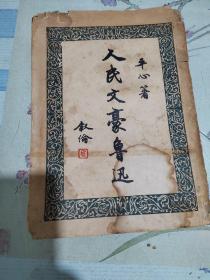 平心著
人民文豪鲁迅
叙伦